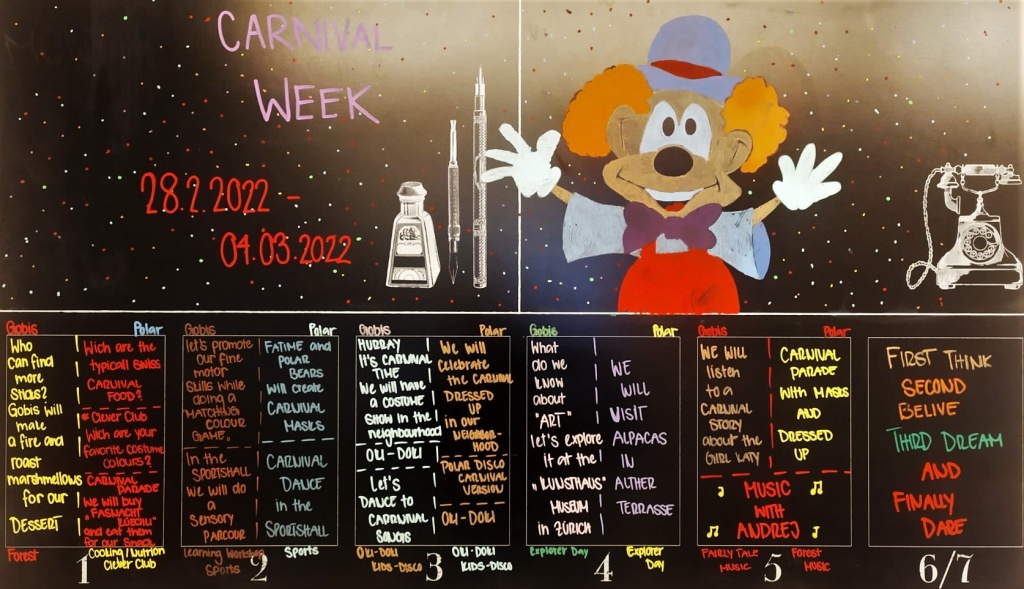 CARNIVAL
WEEK
28.2.2022 -
04.03.2022
Gobis
Who
can find
more
Sticks?
Gobis will
make
a fire and
roast
marshmellows
for our
DESSERT
Forest
Polar
Wich are the
typicall swiss
CARNIVAL
FOOD?
* Clever Club
Wich are your
favorite costume
colours?
CARNIVAL
PARADE
we will buy
"FASNACHT
KÜECHLI"
and eat them
for our snack
Cooking/Nutrition
Clever Club
1
Gobis
let's promote
our fine
motor
skills while
doing a
MATCHING
COLOUR
GAME
In the
SPORTSHALL
we will do
a
Sensory
PARCOUR
Learning Workshop
Sports
Polar
FATIME and
POLAR
BEARS
will create
CARNIVAL
MASKS
CARNIVAL
DANCE
in the
SPORTSHALL
Sports
2
Gobis
HURRAY
It's CARNIVAL
TIME
We will have
a COSTUME
SHOW in the
neighbourhood
OKI-DOKI
Let's
DANCE to
CARNIVAL
SONGS
OKI-DOKI
KIDS-DISCO
Polar
We will
celebrate
the CARNIVAL
DRESSED
UP
in our
NEIGHBOR-
HOOD
POLAR DISCO
CARNIVAL
VERSION
OKI-DOKI
OKI-DOKI
KIDS-DISCO
3
Gobis
What
do we
know
about
"ART"
let's explore
it at the
"KUNSTHAUS"
MUSEUM
in ZÜRICH
Explorer Day
Polar
WE
WILL
VISIT
ALPACAS
IN
ALTHER
TERRASSE
Explorer
Day
4
Gobis
WE WILL
listen
to a
CARNIVAL
STORY
about the
GIRL KATY
Polar
CARNIVAL
PARADE
WITH MASKS
AND
DRESSED
UP
MUSIC
WITH
ANDREJ
FAIRLY TALE
MUSIC
Forest
MUSIC
5
FIRST THINK
SECOND
BELIVE
THIRD DREAM
AND
FINALLY
DARE
6/7